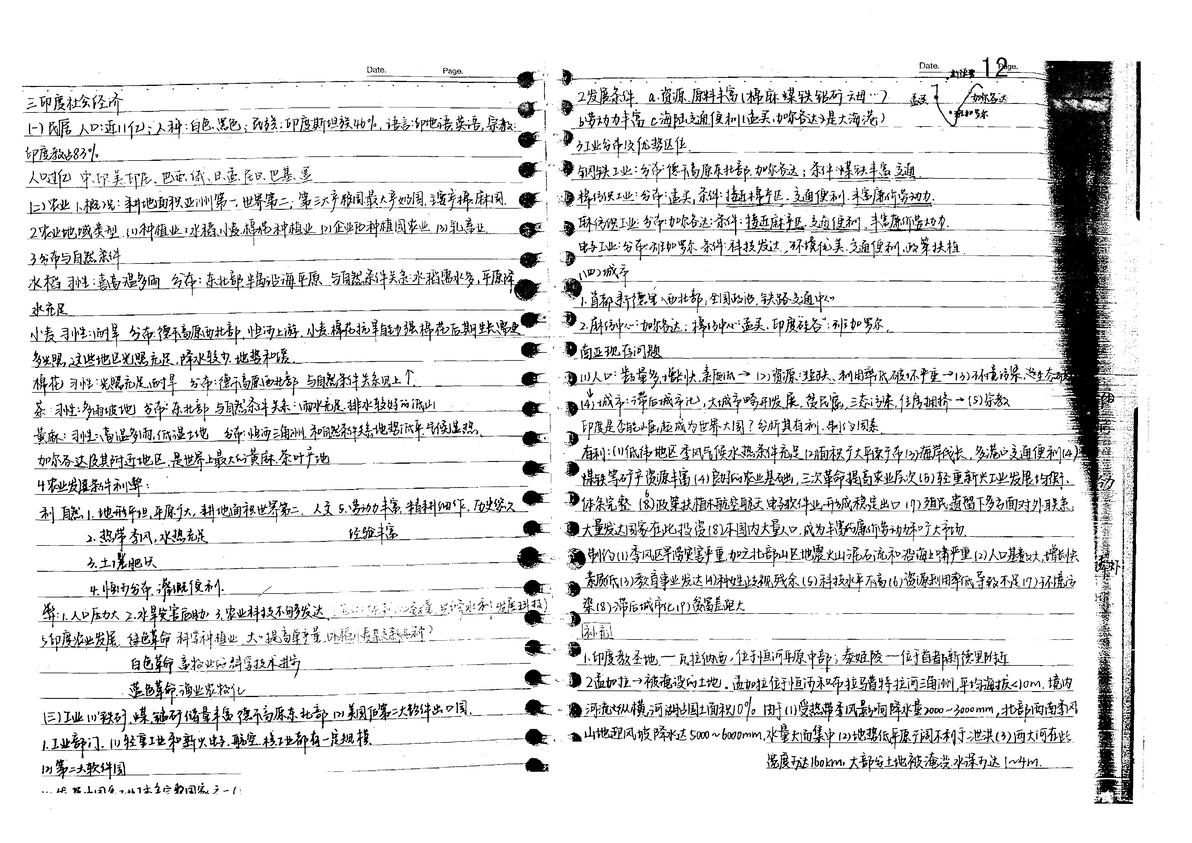 Date. Page.
三印度社会经济
(一)民居 人口:近11亿;人种:白色.黑色;民族:印度斯坦族46%,语言:印地语英语,宗教:
印度教占83%
人口过亿 中.印.美.印尼.巴西.俄.日.孟.尼日.巴基.墨
(二)农业 1.概况:耕地面积亚洲第一,世界第二;第三大产棉国最大另如国.主要产棉.麻.国.
2.农业地域类型.(1)种植业:水稻.小麦.棉花种植业 (2)企业化种植园农业 (3)乳畜业
3.分布与自然条件
水稻 习性:喜高温多雨 分布:东北部.半岛沿海平原 与自然条件关系:水稻需水多,平原降
水充足
小麦 习性:耐旱 分布:德干高原西北部.恒河上游.小麦.棉花抗旱能力强.棉花后期生长需更
多光照,这些地区光照充足.降水较少.地势和缓.
棉花 习性:光照充足,耐旱 分布:德干高原西北部 与自然条件关系见上↑
茶 习性:多雨坡地 分布:东北部 与自然条件关系:雨水充足,排水较好的低山
黄麻 习性:高温多雨,低湿土地 分布:恒河三角洲 和自然条件关系地势低平,气候湿热.
加尔各达及其附近地区,是世界上最大的黄麻.茶叶产地
4.农业发展条件利弊:
利 自然:1.地形平坦,平原广大,耕地面积世界第二. 人文 5.劳动力丰富.精耕细作.历史悠久
2.热带季风,水热充足 经验丰富
3.土壤肥沃
4.恒河分布.灌溉便利.
弊:1.人口压力大 2.水旱灾害频繁 3.农业科技不够发达
5.印度农业发展.绿色革命 科学种植业
白色革命 畜牧业的科学技术进步
蓝色革命 渔业农牧化
(三)工业 (1)铁矿,煤,锰矿储量丰富 德干高原东北部 (2)美国后第二大软件出口国.
1.工业部门.(1)轻重工业和新兴电子.航空.核工业都有一定规模.
(2)第二大软件国
Date. Page. 12
新德里
孟买 加尔各达
班加罗尔
2.发展条件 a.资源.原料丰富(棉.麻.煤.铁.锰矿.云母…)
b.劳动力丰富 c.海陆交通便利(孟买.加尔各达是大海港)
3.工业分布及优势区位
钢铁工业:分布:德干高原东北部.加尔各达;条件:煤铁丰富.交通
棉纺织工业:分布:孟买,条件:接近棉产区.交通便利.丰富廉价劳动力.
麻纺织工业:分布:加尔各达:条件:接近麻产区.交通便利.丰富廉价劳动力.
电子工业:分布:班加罗尔.条件:科技发达.环境优美.交通便利.政策扶植
(四)城市
1.首都:新德里(西北部,全国政治.铁路交通中心
2.麻纺中心:加尔各达;棉纺中心:孟买.印度硅谷:班加罗尔.
南亚现存问题
(1)人口:数量多.增长快.素质低→(2)资源:短缺.利用率低.破坏严重→(3)环境污染.
(4)城市:滞后城市化,大城市畸形发展.贫民窟,三态污染,住房拥挤→(5)宗教
印度是否能崛起成为世界大国?分析其有利.制约因素.
有利:(1)低纬地区季风气候水热条件充足 (2)面积广大平原广布 (3)海岸线长.多港口交通便利 (4)
煤铁等矿产资源丰富 (4)良好的农业基础,三次革命提高农业层次 (5)轻重新兴工业发展均衡,
体系完整 (6)政策扶植,航空航天.电子软件业形成稳定出口 (7)殖民遗留下多方面对外联系,
大量发达国家在此投资 (8)本国内大量人口,成为丰富的廉价劳动力和广大市场.
制约 (1)季风区旱涝灾害严重.加之北部山区地震火山泥石流和沿海海啸严重 (2)人口基数大,增长快
素质低 (3)教育事业发达 (4)种姓歧视残余 (5)科技水平不高 (6)资源利用率低导致不足 (7)环境污
染 (8)滞后城市化 (9)贫富差距大
补充
1.印度教圣地—瓦拉纳西,位于恒河平原中部;泰姬陵—位于首都新德里附近
2.孟加拉→被淹没的土地.孟加拉位于恒河和布拉马普特拉河三角洲,平均海拔<10m.境内
河流纵横,河湖占国土面积10%.由于(1)受热带季风影响降水量2000~3000mm,北部西南季风
山地迎风坡降水达5000~6000mm,水量大而集中 (2)地势低平原广阔不利于泄洪 (3)两大河在此
宽度可达160km,大部分土地被淹没水深可达1~4m.